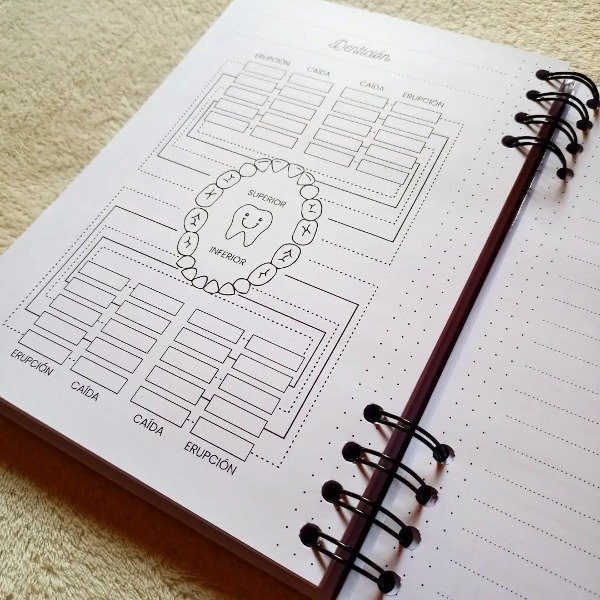 Dentición
ERUPCIÓN CAÍDA CAÍDA ERUPCIÓN
SUPERIOR
INFERIOR
ERUPCIÓN CAÍDA CAÍDA ERUPCIÓN